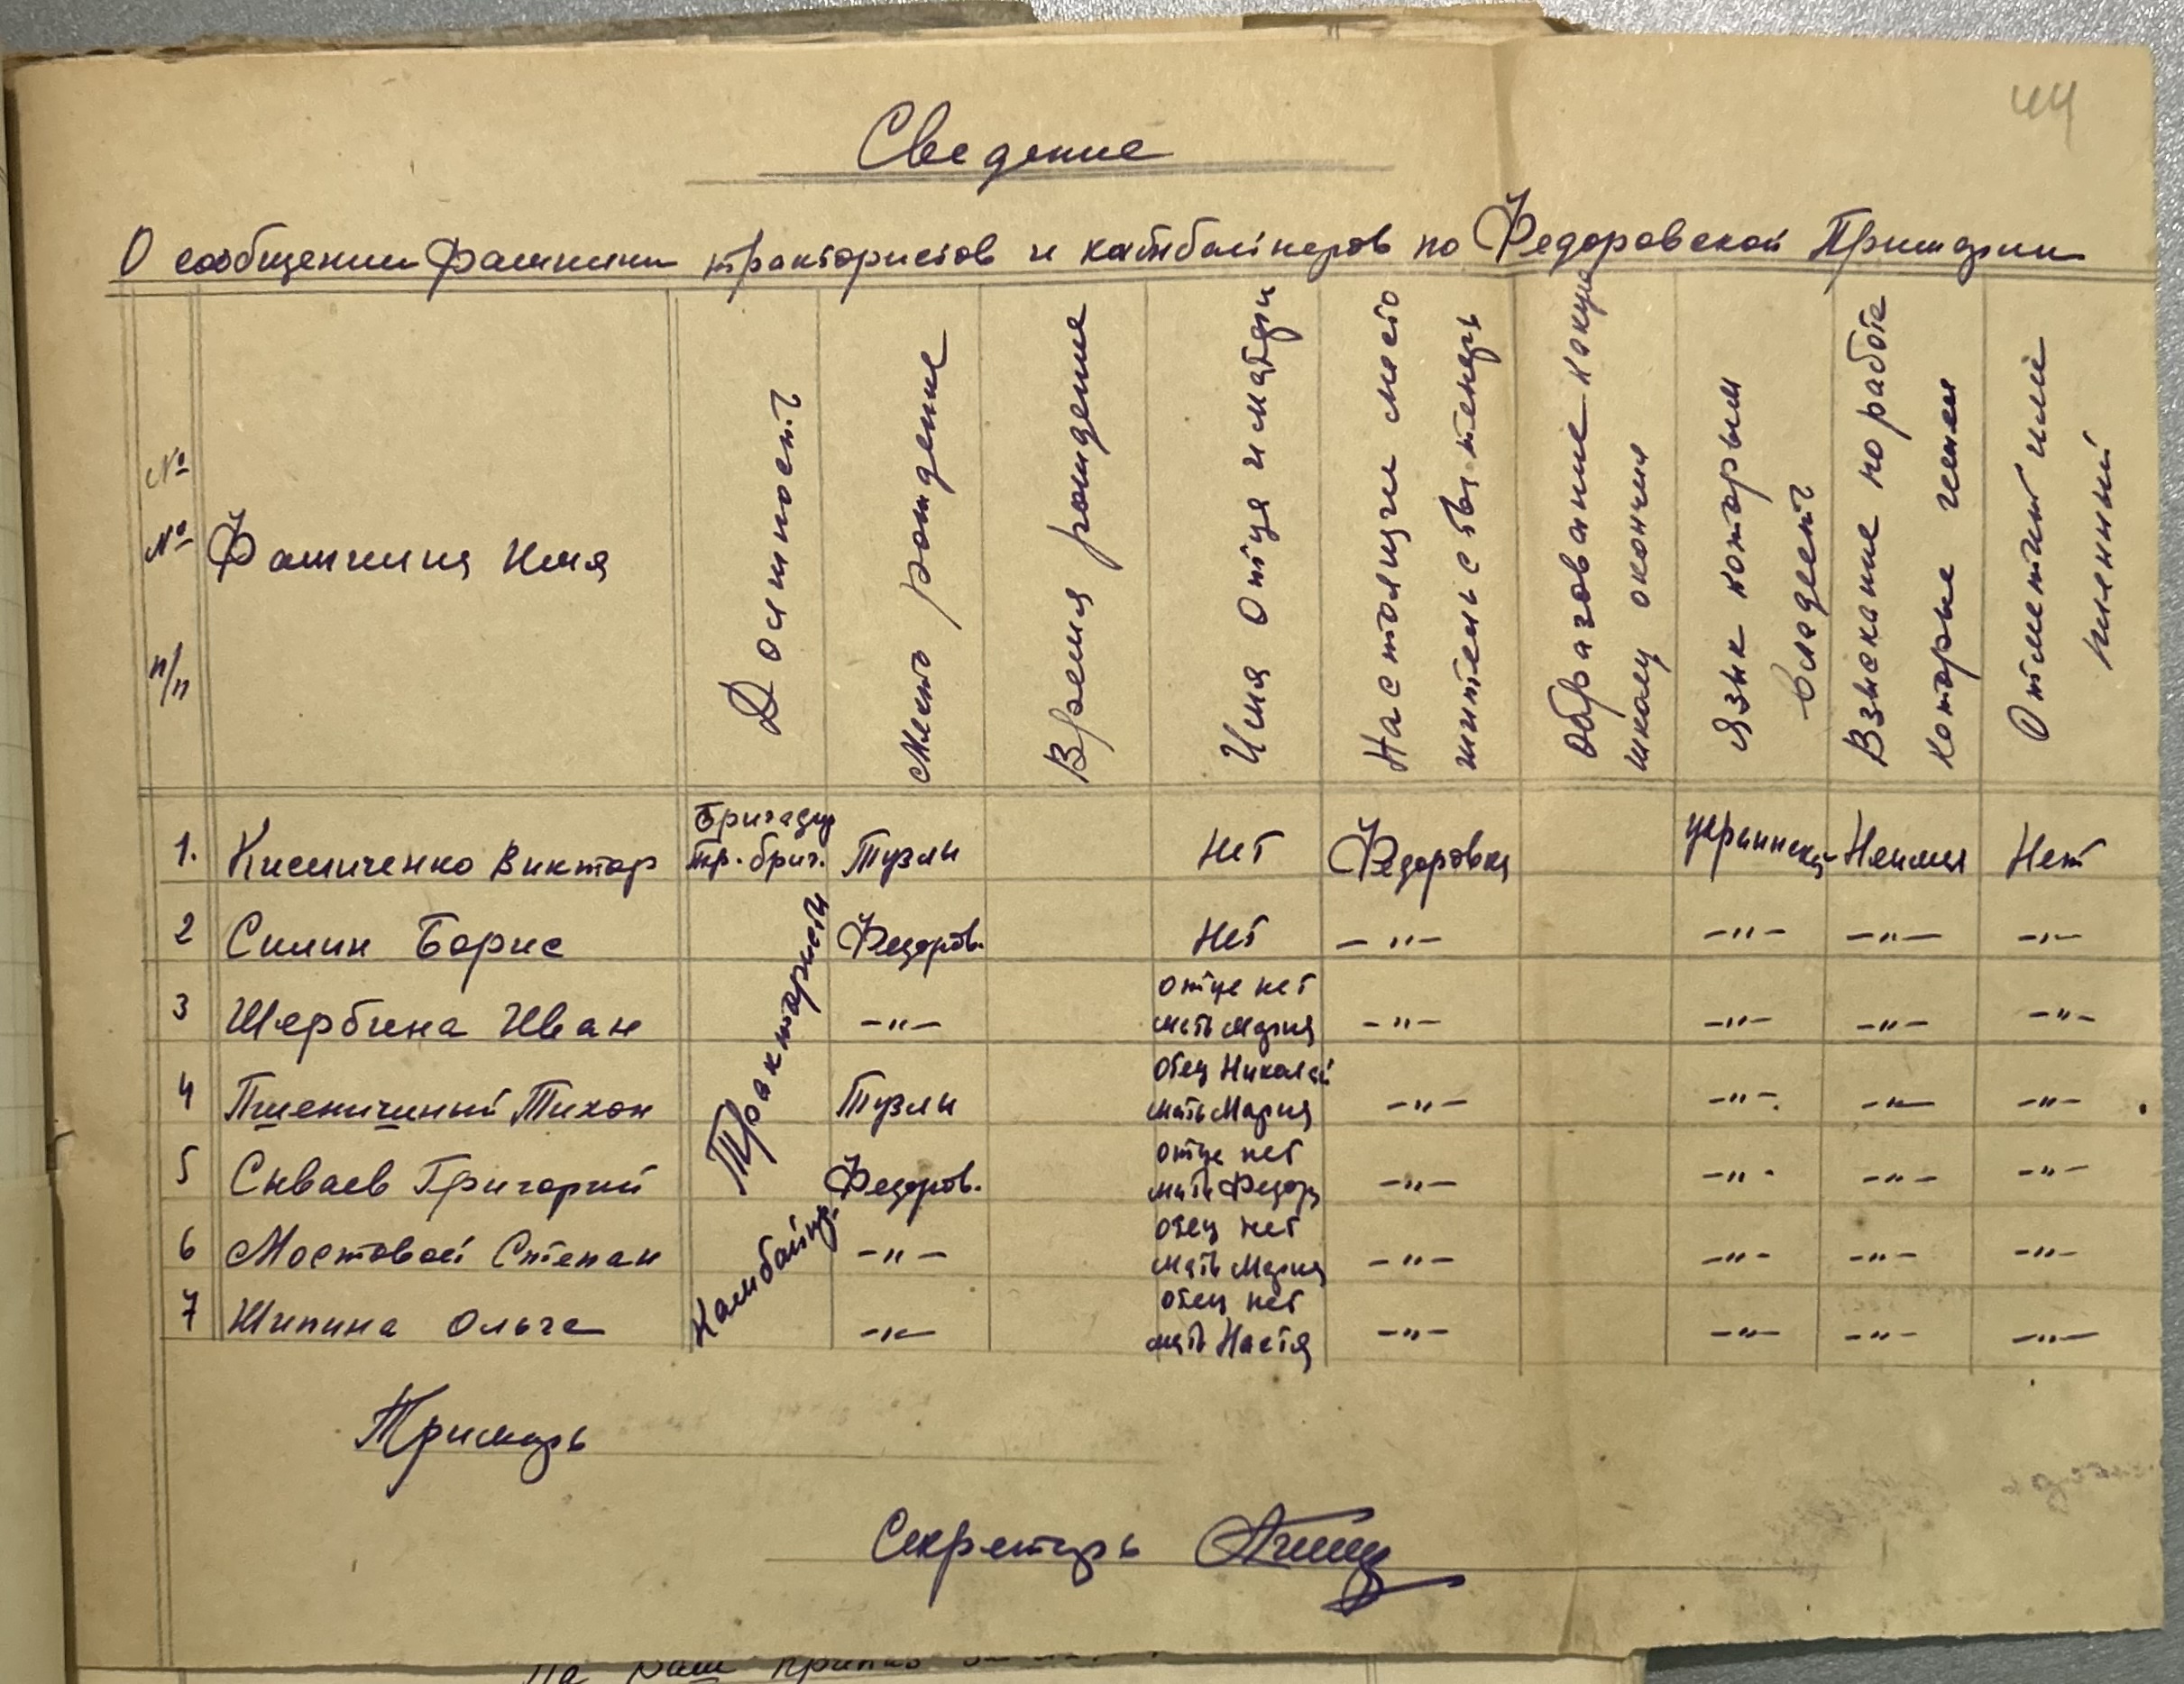 44
Сведение
О сообщении фамилии трактористов и камбайнеров по Федоровской Примарии
№ № п/п
Фамилия Имя
Должность
Место рождение
Время рождение
Имя Отца и матери
Настоящее место жительства теперь
Образование какую школу окончил
Язык которым владеет
Взыскание по работе которые имел
Отметки или
1. Кисличенко Виктор Бригадир тр. бриг. Тузлы Нет Федоровка Неимел Нет
2 Силин Борис Федоров. Нет —„— —„— —„— —„—
3 Щербина Иван —„— отце нет мать Мария —„— —„— —„— —„—
4 Пшеничный Тихон Тузлы Отец Николай мать Мария —„— —„— —„— —„—
5 Сываев Григорий Федоров. отце нет мать Федор —„— —„— —„— —„—
Трактористы
6 Мостовой Степан —„— отец нет мать Мария —„— —„— —„— —„—
7 Шипина Ольга —„— отец нет мать Настя —„— —„— —„— —„—
Камбайнер.
Примарь
Секретарь